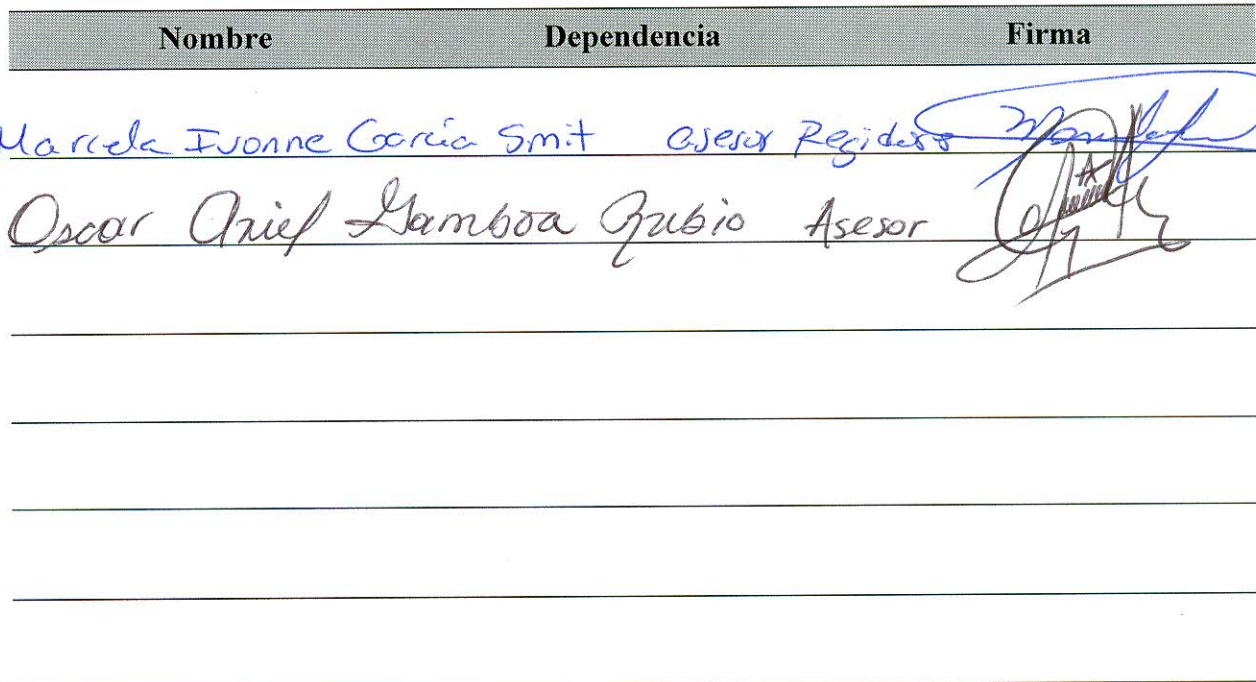 Nombre Dependencia Firma
Marcela Ivonne García Smit asesor Regidora
Oscar Ariel Gamboa Rubio Asesor